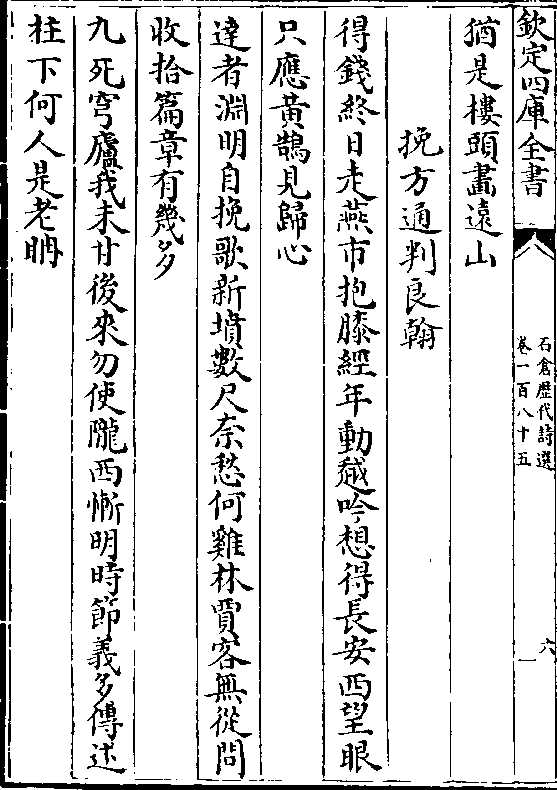 欽定四庫全書
石倉歴代詩選
卷一百八十五
六
猶是樓頭畫遠山
挽方通判良翰
得錢終日走燕市抱膝經年動越吟想得長安西望眼
只應黃鵠見歸心
達者淵明自挽歌新墳數尺奈愁何雞林賈客無從問
收拾篇章有幾多
九死穹廬我未甘後來勿使隴西慚明時節義多傳述
柱下何人是老聃